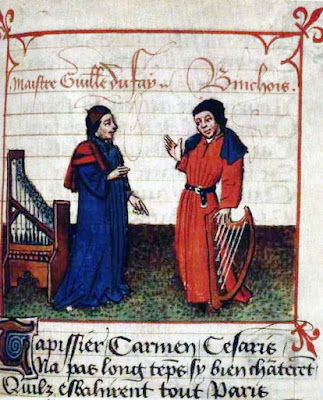 Maistre Guille du fay Binchois.
Tapissier Carmen Cesaris
Na pas long teps sy bien chāterēt
Quilz esbahirent tout Paris